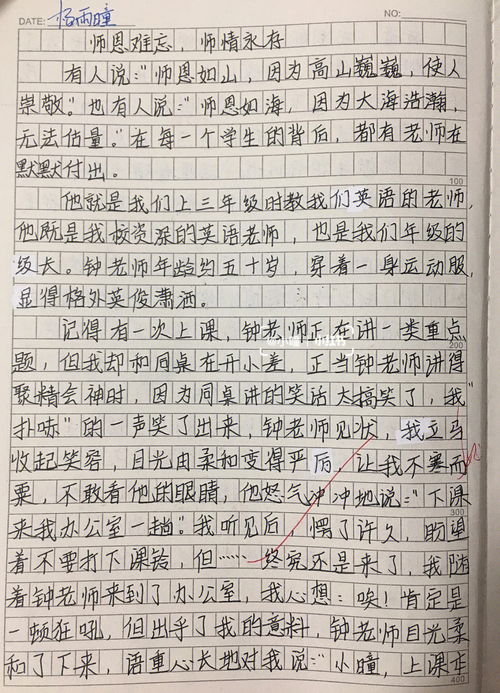 DATE: 杨雨瞳 NO:
师恩难忘，师情永存
有人说："师恩如山，因为高山巍巍，使人
崇敬。"也有人说："师恩如海，因为大海浩瀚，
无法估量。"在每一个学生的背后，都有老师在
默默付出。
100
他就是我们上三年级时教我们英语的老师，
他既是我校资深的英语老师，也是我们年级的
级长。钟老师年龄约五十岁，穿着一身运动服，
显得格外英俊潇洒。
记得有一次上课，钟老师正在讲一类重点
200
题，但我却和同桌在开小差，正当钟老师讲得
聚精会神时，因为同桌讲的笑话太搞笑了，我"
扑哧"的一声笑了出来，钟老师见状，我立马
收起笑容，目光由柔和变得严厉，让我不寒而
栗，不敢看他的眼睛，他怒气冲冲地说："下课
300
来我办公室一趟"。我听见后，愣了许久，盼望
着不要打下课铃，但……终究还是来了，我随
着钟老师来到了办公室，我心想：唉！肯定是
一顿狂吼，但出乎了我的意料，钟老师目光柔
和了下来，语重心长地对我说："小瞳，上课
400